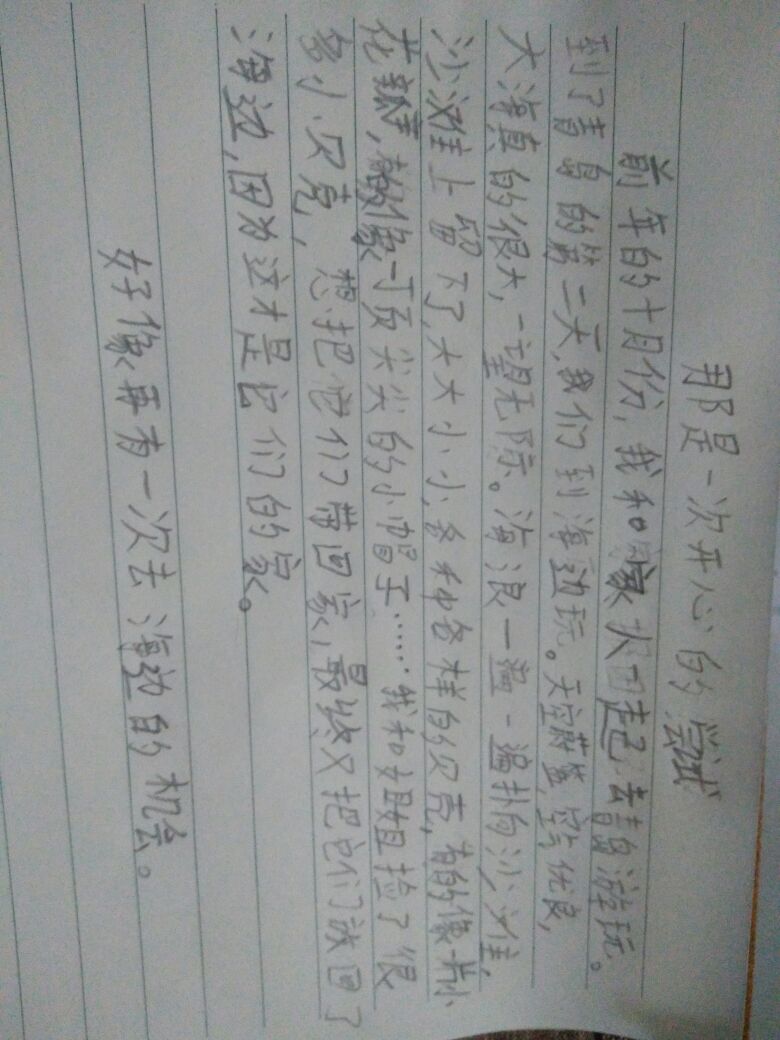 那是一次开心的尝试
前年的十月份，我和家人一起去青岛游玩。
到了青岛的第二天，我们到海边玩。天空蔚蓝，空气优良，
大海真的很大，一望无际。海浪一遍一遍扑向沙滩，
沙滩上留下了，大大小小，各种各样的贝壳，有的像一片小
花瓣，像一顶尖尖的小帽子……我和姐姐捡了很
多小贝壳，想把他们带回家，最终又把它们放回了
海边，因为这才是它们的家。
好像再有一次去海边的机会。